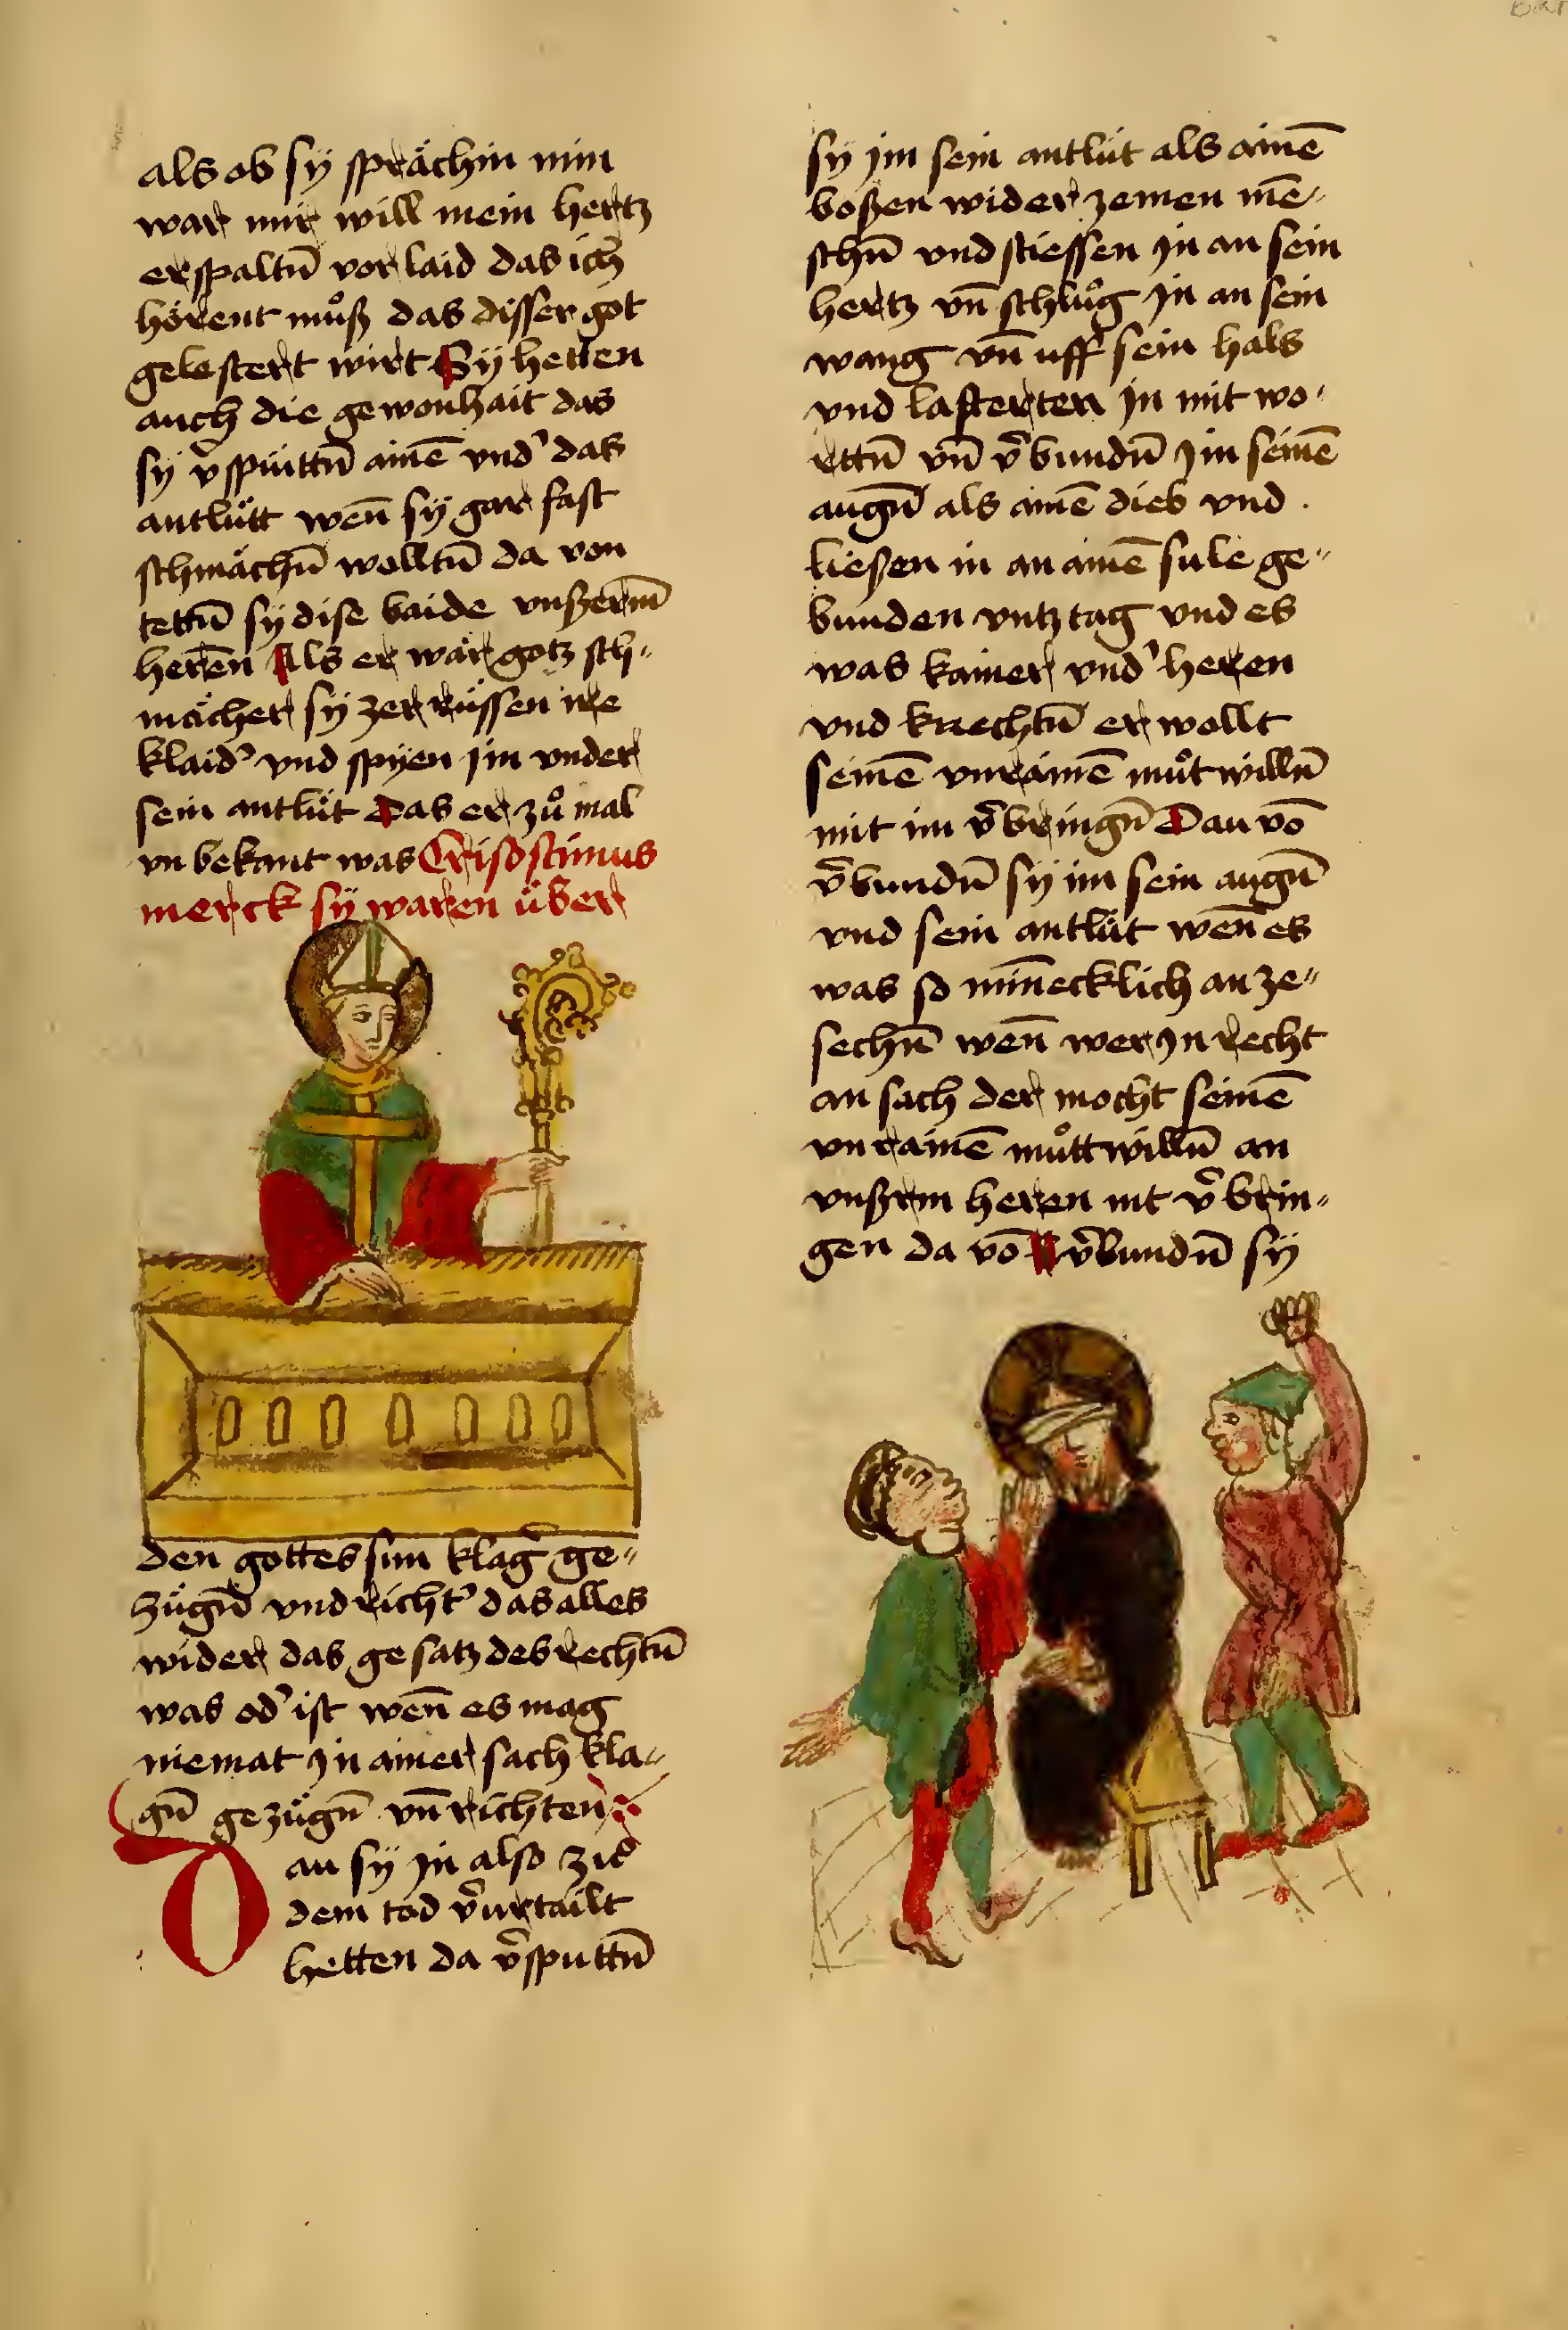 als ob sÿ sprächin nim
war mir will mein hertz
erspaltn̄ vor laid das ich
hörent můß das disser got
gelestert wirt Sÿ hetten
auch die gewonhait das
sÿ v̄spüittn̄ ainē vnd' das
antlütt wen̄ sÿ gar fast
schmächn̄ wolltn̄ da von
tettn̄ sÿ dise baide vnßerm̄
heren Als er wär gotz sch„
mächer sÿ zerrüssen ire
klaid' vnd spÿen jm vnder
sein antlüt Das er zů mal
vn bekant was Crisostimus
merck sÿ waren über
den gottes sun klaḡ ge„
zügn̄ vnd richt' das alles
wider das gesatz des rechtn̄
was od' ist wen̄ es mag
niemat jn ainer sach kla„
gn̄ gezügn̄ vn̄ richten
Dau sÿ jn also zid
dem tod v̄urtailt
hetten da v̄sputtn̄
sÿ jm sein antlüt als ainē
boßen wider zemen mē„
schn̄ vnd stiessen jn an sein
hertz vn̄ schlůg jn an sein
wang vn̄ uff sein hals
vnd lasterten jn mit wo„
rttn̄ vn̄ v̄bundn̄ jm seinē
augn̄ als ainē dieb vnd
ließen in an ainē sule ge„
bunden vntz tag vnd es
was kainer vnd' heren
vnd knechtn̄ er wollt
seinē vnrainē můtwilln̄
mit im v̄bringn̄ Dau vō
v̄bundn̄ sÿ im sein augn̄
vnd sein antlüt wen̄ es
was so min̄ecklich an ze„
sechn̄ wen̄ wer jn recht
an sach der mocht seinē
vnrainē můttwilln̄ an
vnßrm heren nit v̄brin„
gen da vō v̄bundn̄ sÿ